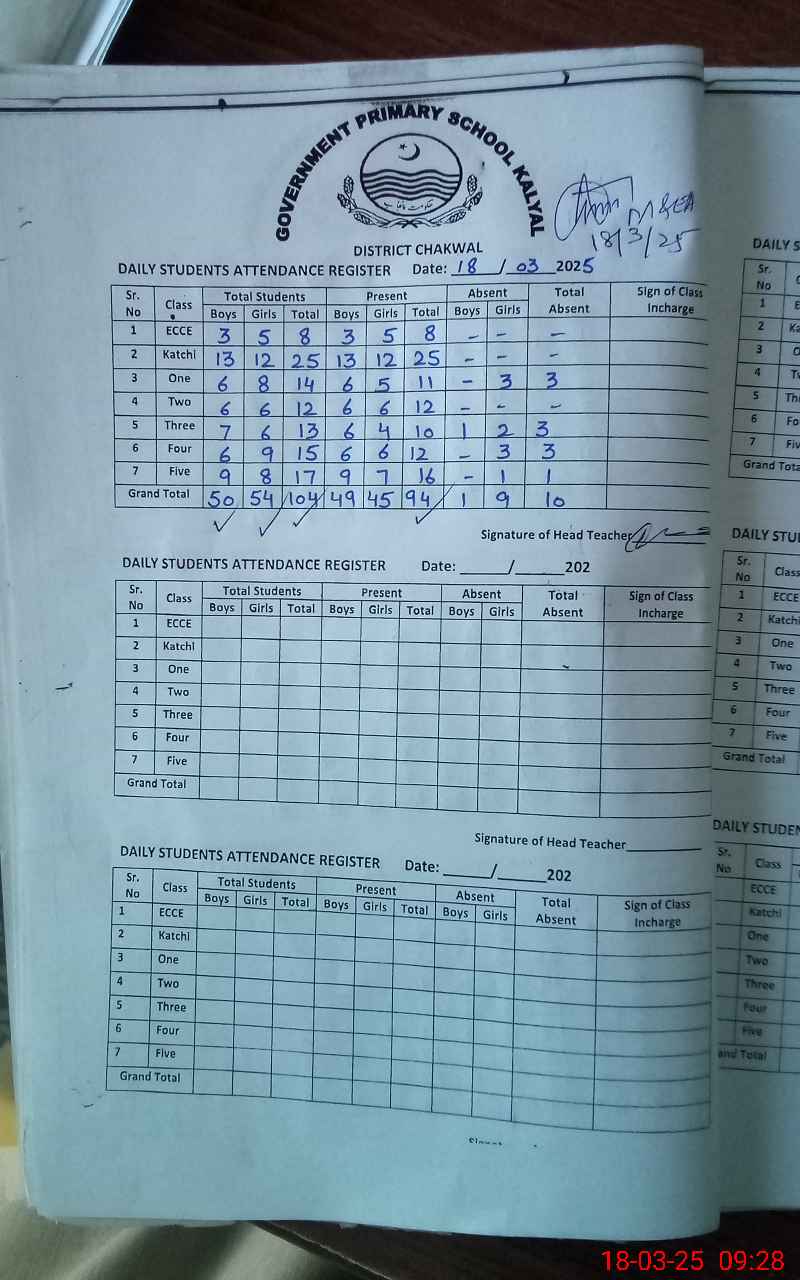 GOVERNMENT PRIMARY SCHOOL KALYAL
M&EA
18/3/25
DISTRICT CHAKWAL
DAILY STUDENTS ATTENDANCE REGISTER Date: 18/03 2025
Sr. No Class Total Students Present Absent Total Absent Sign of Class Incharge
Boys Girls Total Boys Girls Total Boys Girls
1 ECCE 3 5 8 3 5 8 - - -
2 Katchi 13 12 25 13 12 25 - - -
3 One 6 8 14 6 5 11 - 3 3
4 Two 6 6 12 6 6 12 - - -
5 Three 7 6 13 6 4 10 1 2 3
6 Four 6 9 15 6 6 12 - 3 3
7 Five 9 8 17 9 7 16 - 1 1
Grand Total 50 54 104 49 45 94 1 9 10
Signature of Head Teacher
DAILY STUDENTS ATTENDANCE REGISTER Date: _____/_____202
Sr. No Class Total Students Present Absent Total Absent Sign of Class Incharge
Boys Girls Total Boys Girls Total Boys Girls
1 ECCE
2 Katchi
3 One
4 Two
5 Three
6 Four
7 Five
Grand Total
Signature of Head Teacher__________
DAILY STUDENTS ATTENDANCE REGISTER Date: _____/_____202
Sr. No Class Total Students Present Absent Total Absent Sign of Class Incharge
Boys Girls Total Boys Girls Total Boys Girls
1 ECCE
2 Katchi
3 One
4 Two
5 Three
6 Four
7 Five
Grand Total
DAILY S
Sr. No
1 E
2 Ka
3 O
4 Tw
5 Th
6 Fo
7 Fiv
Grand Tota
DAILY STU
Sr. No Class
1 ECCE
2 Katchi
3 One
4 Two
5 Three
6 Four
7 Five
Grand Total
DAILY STUDEN
Sr. No Class
ECCE
Katchi
One
Two
Three
Four
Five
and Total
18-03-25 09:28